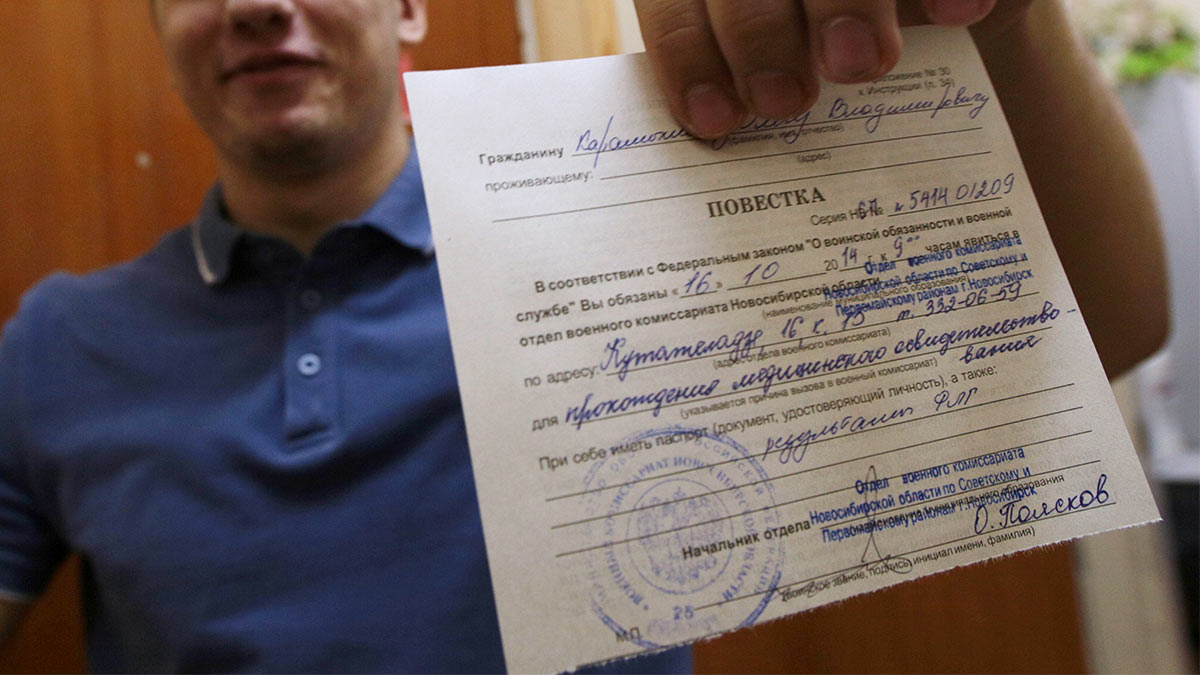 Приложение № 30
к Инструкции (п. 34)
Гражданину Владимировичу
(фамилия, имя, отчество)
проживающему:
(адрес)
ПОВЕСТКА
Серия НП № 5414 01209
В соответствии с Федеральным законом "О воинской обязанности и военной
службе" Вы обязаны «16» 10 2014 г. к 9 00 часам явиться в
отдел военного комиссариата Новосибирской области
Отдел военного комиссариата
Новосибирской области по Советскому и
Первомайскому районам г.Новосибирск
(наименование муниципального образования)
по адресу: Кутателадзе, 16, к. 15 т. 332-06-59
(адрес отдела военного комиссариата)
для прохождения медицинского освидетельство-
вания
(указывается причина вызова в военный комиссариат)
При себе иметь паспорт (документ, удостоверяющий личность), а также:
результаты ФЛГ
Начальник отдела
Отдел военного комиссариата
Новосибирской области по Советскому и
Первомайскому районам г.Новосибирск
(наименование муниципального образования)
О. Поясков
(воинское звание, подпись, инициал имени, фамилия)
ВОЕННЫЙ КОМИССАРИАТ НОВОСИБИРСКОЙ ОБЛАСТИ
М.П. 25